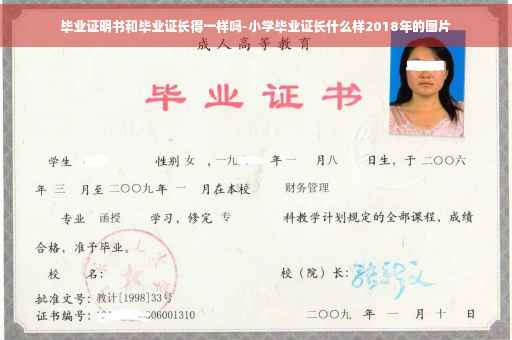 毕业证明书和毕业证长得一样吗-小学毕业证长什么样2018年的图片
成人高等教育
毕业证书
学生 性别 女 ,一九 年 一 月八 日生，于二〇〇六
年 三 月至二〇〇九年 一 月在本校 财务管理
专业 函授 学习，修完 专 科教学计划规定的全部课程，成绩
合格，准予毕业。
校 名： 校（院）长：
批准文号：教计[1998]33号
证书编号： 06001310 二〇〇九 年 一 月 十 日